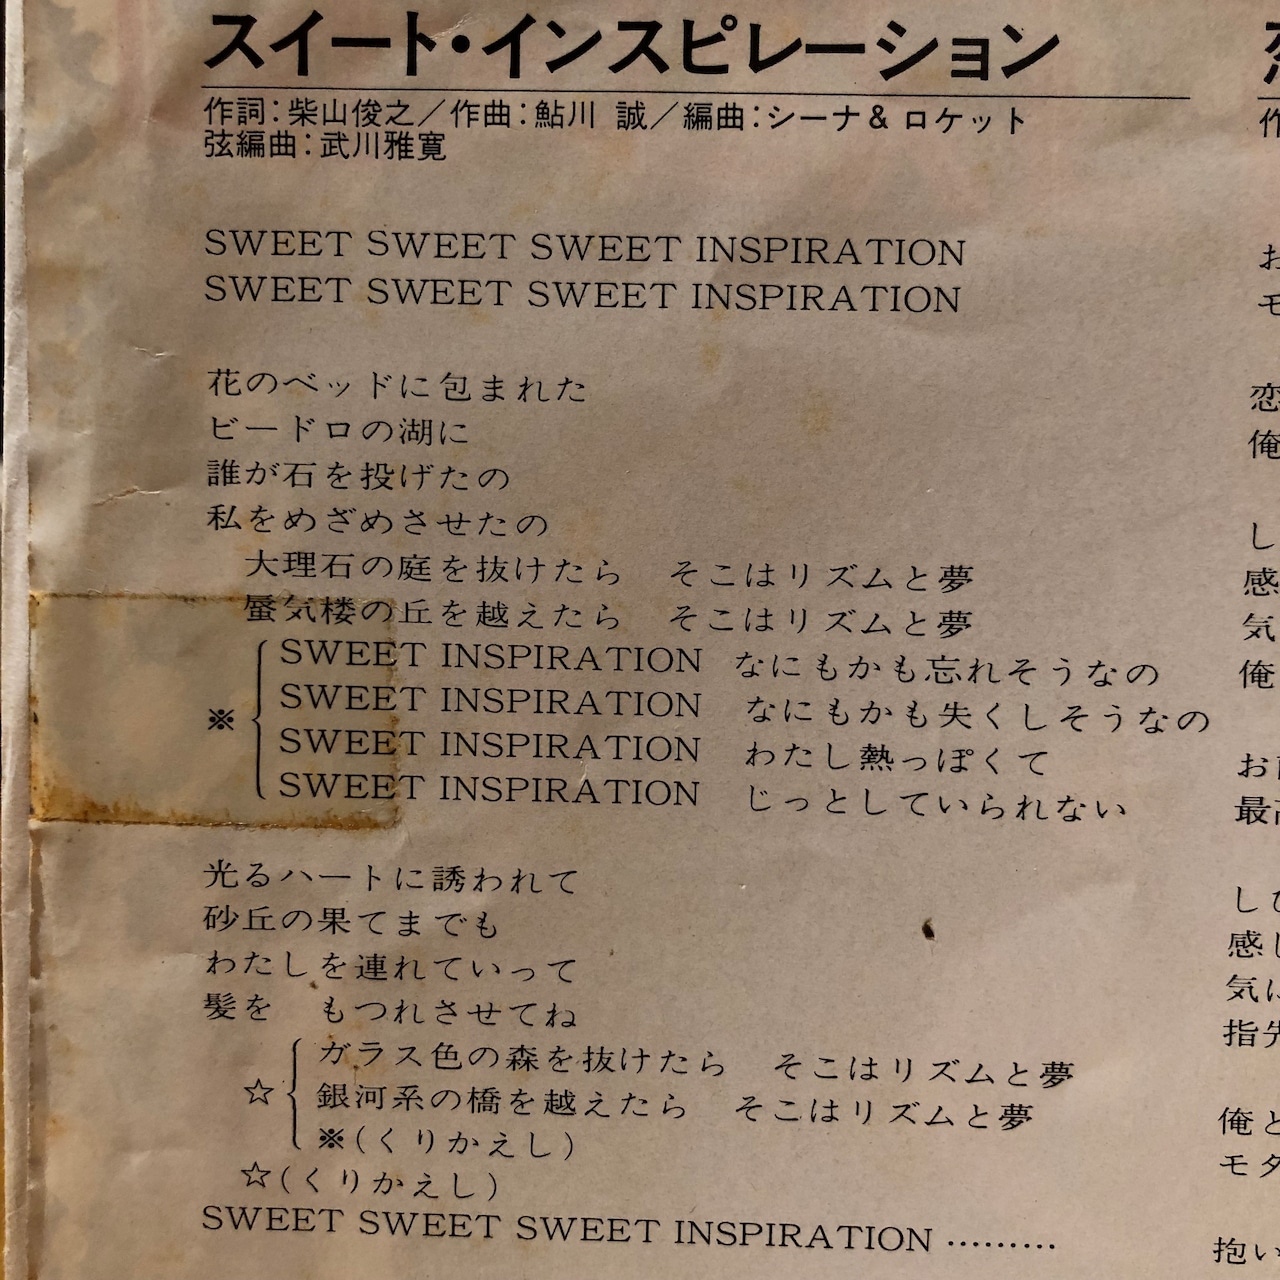 スイート・インスピレーション
作詞：柴山俊之／作曲：鮎川 誠／編曲：シーナ& ロケット
弦編曲：武川雅寛
SWEET SWEET SWEET INSPIRATION
SWEET SWEET SWEET INSPIRATION
花のベッドに包まれた
ビードロの湖に
誰が石を投げたの
私をめざめさせたの
大理石の庭を抜けたら　そこはリズムと夢
蜃気楼の丘を越えたら　そこはリズムと夢
SWEET INSPIRATION　なにもかも忘れそうなの
SWEET INSPIRATION　なにもかも失くしそうなの
※
SWEET INSPIRATION　わたし熱っぽくて
SWEET INSPIRATION　じっとしていられない
光るハートに誘われて
砂丘の果てまでも
わたしを連れていって
髪を　もつれさせてね
ガラス色の森を抜けたら　そこはリズムと夢
☆ 銀河系の橋を越えたら　そこはリズムと夢
※(くりかえし)
☆(くりかえし)
SWEET SWEET SWEET INSPIRATION ………
作
お
モ
恋
俺
し
感
気
俺
お
最高
しび
感じ
気に
指先
俺と
モタ
抱い